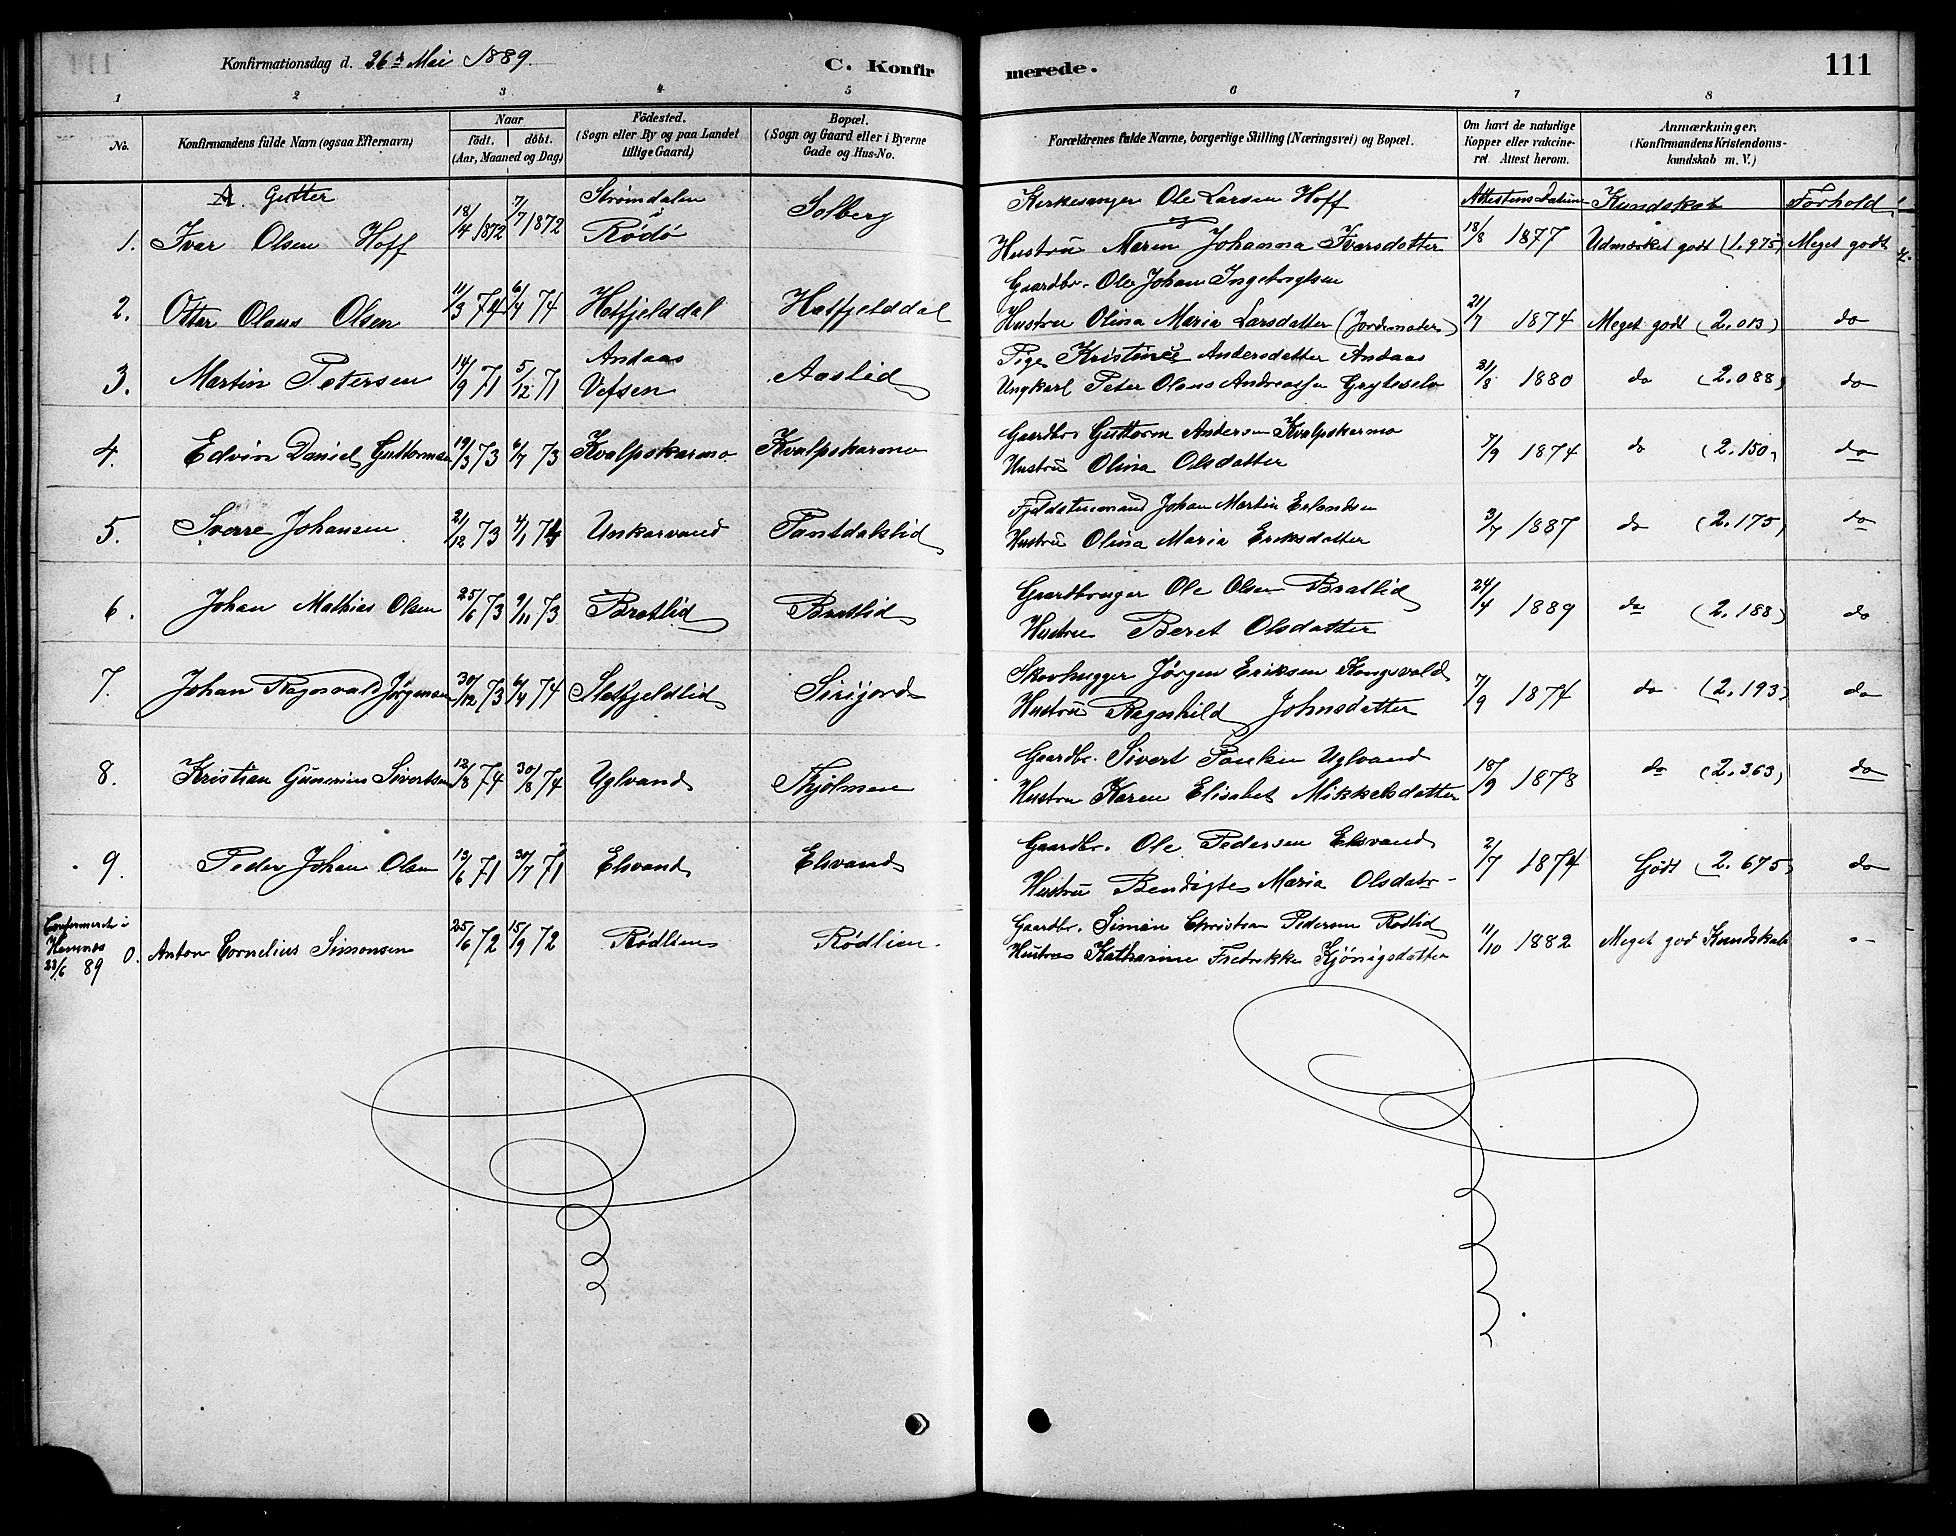 Konfirmationsdag d. 26de Mai 1889.
C. Konfirmerede.
111
1 2 3 4 5 6 7 8
No.
Konfirmandens fulde Navn (ogsaa Efternavn)
Naar
födt. döbt.
(Aar, Maaned og Dag)
Födested.
(Sogn eller By og paa Landet
tillige Gaard)
Bopæl.
(Sogn og Gaard eller i Byerne
Gade og Hus-No.
Forældrenes fulde Navne, borgerlige Stilling (Næringsvei) og Bopæl.
Om havt de naturlige
Kopper eller vakcine-
ret. Attest herom.
Anmærkninger.
(Konfirmandens Kristendoms-
kundskab m. V.)
A. Gutter
Attestens Datum Kundskab Forhold
Strömdalen Kirkesanger Ole Larsen Hoff
1. Ivar Olsen Hoff 18/4 1872 7/7 1872 Rödö Solberg og Hustru Maren Johanna Ivarsdatter 18/8 1877 Udmærket godt (1.975) Meget godt
Gaardbr. Ole Johan Ingebrigtsen
2. Otter Olaus Olsen 11/3 74 6/4 74 Hatfjelddal Hatfjelddal Hustru Olina Maria Larsdatter (Jordmoder) 21/7 1874 Meget godt (2.013) do
Andaas Pige Kristine Andersdatter Andaas
3. Martin Petersen 14/9 71 5/12 71 Vefsen Aaslid Ungkarl Peter Olaus Andreassen Grytselv 21/8 1880 do (2.088) do
Gaardbr. Guttorm Andersen Kvalpskarmo
4. Edvin Daniel Guttormsen 19/3 73 6/7 73 Kvalpskarmo Kvalpskarmo Hustru Olina Olsdatter 7/9 1874 do (2.150) do
Fjeldstuemand Johan Martin Erlandsen
5. Sverre Johansen 21/12 73 4/1 74 Unkarvand Tantdalslid Hustru Olina Maria Eriksdatter 3/7 1887 do (2.175) do
Gaardbruger Ole Olsen Bratlid
6. Johan Mathias Olsen 25/6 73 9/11 73 Bratlid Bratlid Hustru Beret Olsdatter 24/4 1889 do (2.188) do
Skovhugger Jørgen Eriksen Kongsvold
7. Johan Ragnvald Jörgensen 30/12 73 6/4 74 Stotfjeldlid Sirijord Hustru Ragnhild Johnsdatter 7/9 1874 do (2.193) do
Gaardbr. Sivert Paulsen Uglvand
8. Kristian Gunerius Sivertsen 12/8 74 30/8 74 Uglvand Thjölmen Hustru Karen Elisabet Mikkelsdatter 18/9 1878 do (2.363) do
Gaardbr. Ole Pedersen Elsvand
9. Peder Johan Olsen 13/6 71 30/7 71 Elsvand Elsvand Hustru Bendigte Maria Olsdatr 2/7 1874 Godt (2.675) do
Confirmeret i
Hemnes
23/6 89
Gaardbr. Simon Christian Pedersen Rødlid
0. Anton Cornelius Simonsen 25/6 72 15/9 72 Rödlien Rödlien Hustru Katharine Fredrikke Kjönigsdatter 11/10 1882 Meget god Kundskab